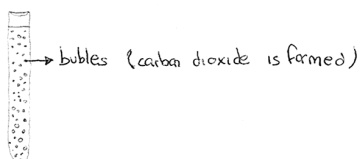 bubles (carbon dioxide is formed)